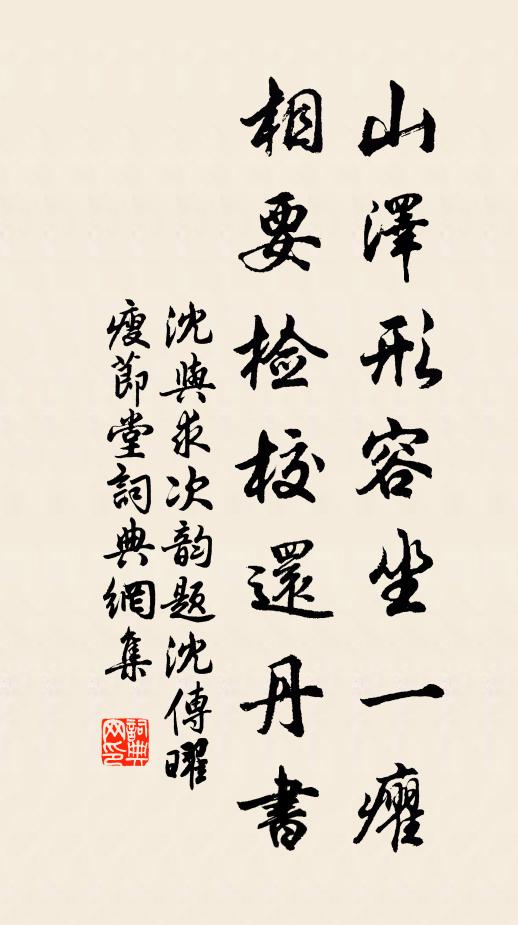 山澤形容坐一癯
相要檢校還丹書
沈與求次韵題沈傳曜
瘦節堂詞典網集
詞典網印